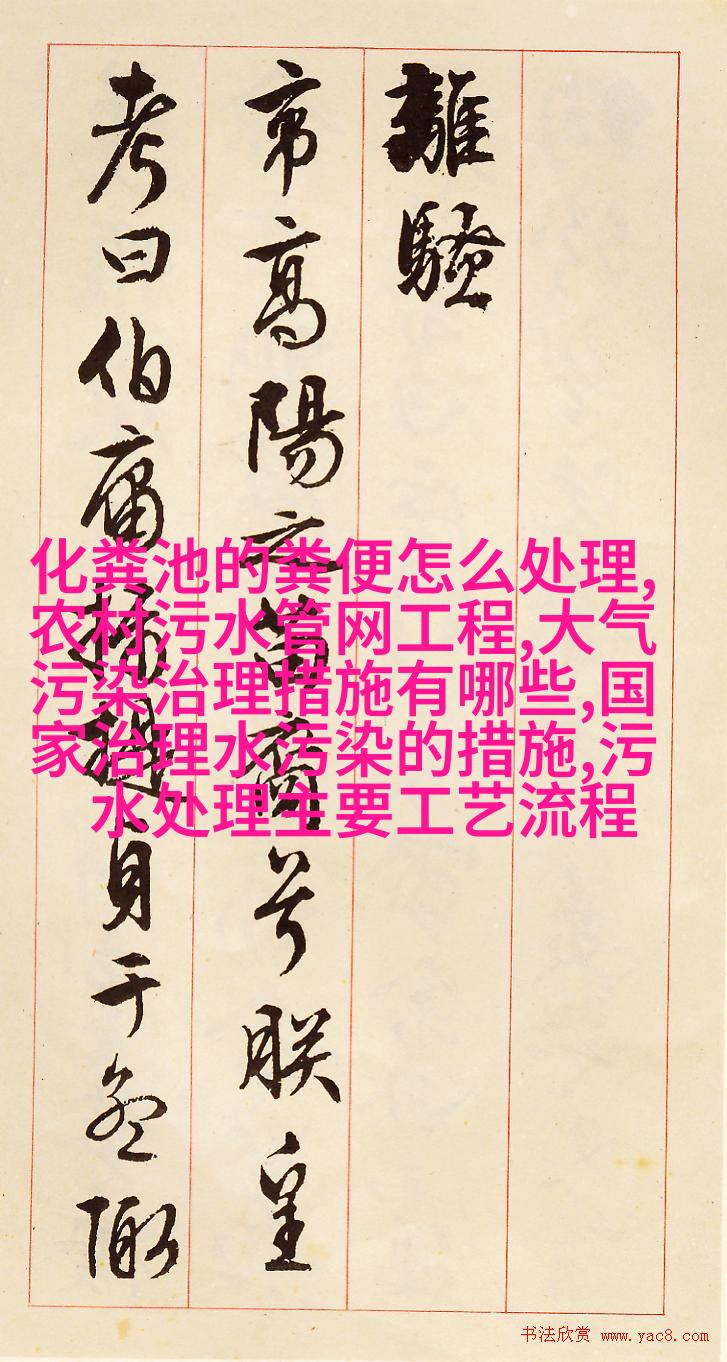 離騷
帝高陽之苗裔兮朕皇
考曰伯庸攝提貞于孟陬
化粪池的粪便怎么处理,
农村污水管网工程,大气
污染治理措施有哪些,国
家治理水污染的措施,污
水处理主要工艺流程
书法欣赏 www.yac8.com